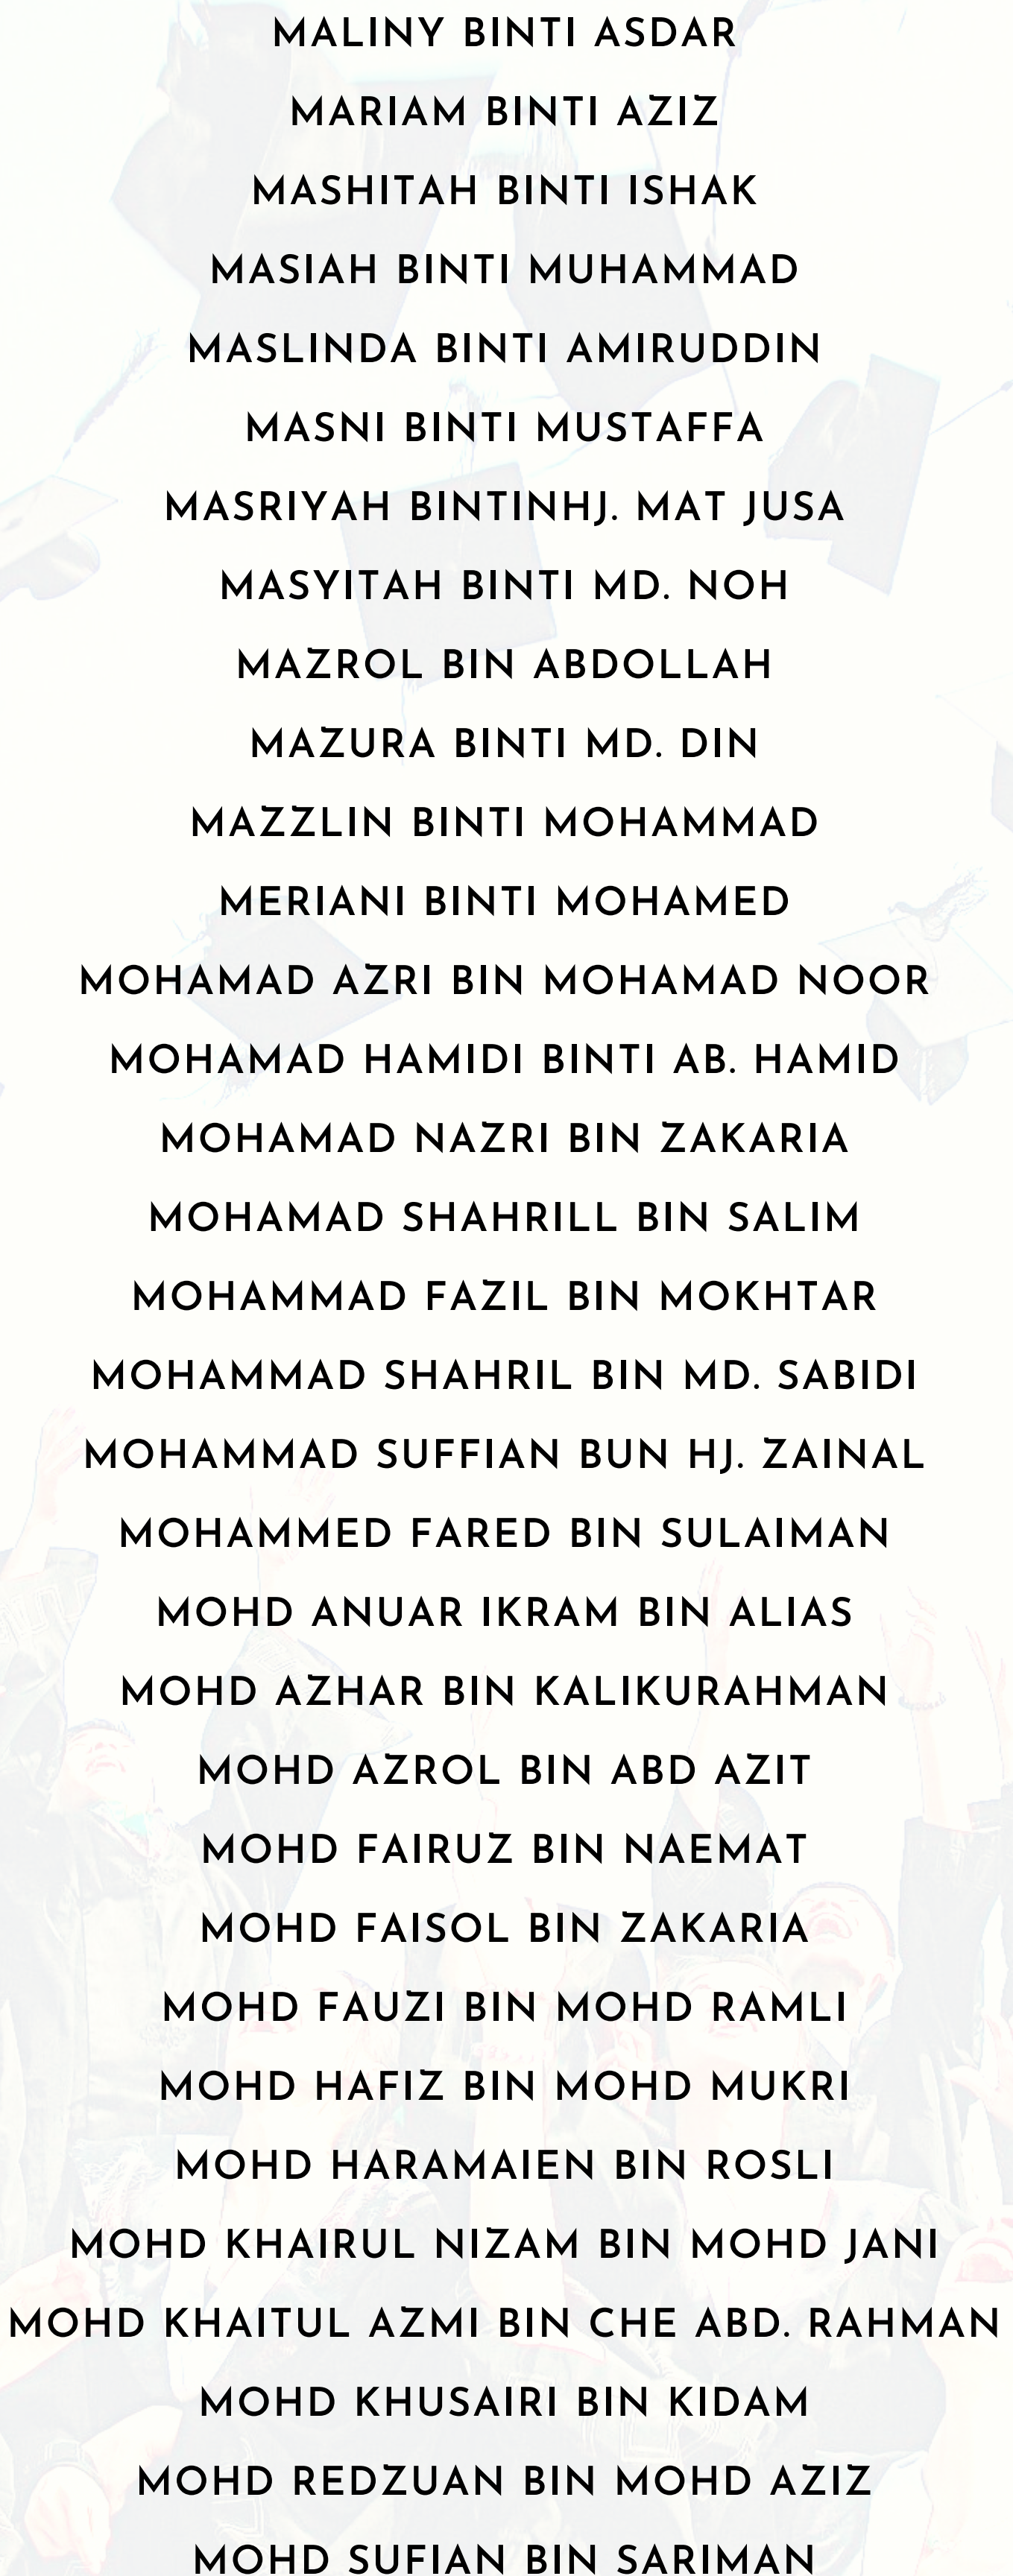 MALINY BINTI ASDAR
MARIAM BINTI AZIZ
MASHITAH BINTI ISHAK
MASIAH BINTI MUHAMMAD
MASLINDA BINTI AMIRUDDIN
MASNI BINTI MUSTAFFA
MASRIYAH BINTINHJ. MAT JUSA
MASYITAH BINTI MD. NOH
MAZROL BIN ABDOLLAH
MAZURA BINTI MD. DIN
MAZZLIN BINTI MOHAMMAD
MERIANI BINTI MOHAMED
MOHAMAD AZRI BIN MOHAMAD NOOR
MOHAMAD HAMIDI BINTI AB. HAMID
MOHAMAD NAZRI BIN ZAKARIA
MOHAMAD SHAHRILL BIN SALIM
MOHAMMAD FAZIL BIN MOKHTAR
MOHAMMAD SHAHRIL BIN MD. SABIDI
MOHAMMAD SUFFIAN BUN HJ. ZAINAL
MOHAMMED FARED BIN SULAIMAN
MOHD ANUAR IKRAM BIN ALIAS
MOHD AZHAR BIN KALIKURAHMAN
MOHD AZROL BIN ABD AZIT
MOHD FAIRUZ BIN NAEMAT
MOHD FAISOL BIN ZAKARIA
MOHD FAUZI BIN MOHD RAMLI
MOHD HAFIZ BIN MOHD MUKRI
MOHD HARAMAIEN BIN ROSLI
MOHD KHAIRUL NIZAM BIN MOHD JANI
MOHD KHAITUL AZMI BIN CHE ABD. RAHMAN
MOHD KHUSAIRI BIN KIDAM
MOHD REDZUAN BIN MOHD AZIZ
MOHD SUFIAN BIN SARIMAN